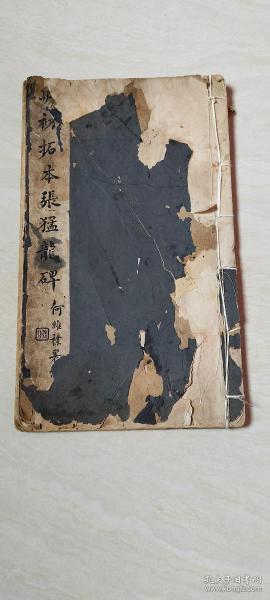 明初拓本張猛龍碑
何維樸署
孔夫子旧书网